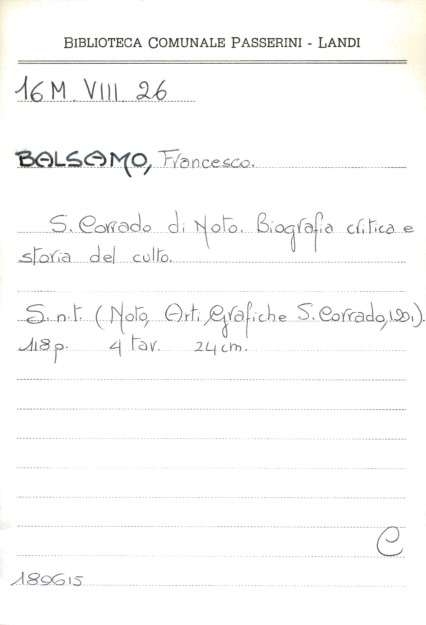 BIBLIOTECA COMUNALE PASSERINI - LANDI
16 M. VIII. 26
BALSAMO, Francesco.
S. Corrado di Noto. Biografia critica e
storia del culto.
S.n.t. (Noto, Arti Grafiche S. Corrado,
118 p. 4 tav. 24 cm.
C
189615